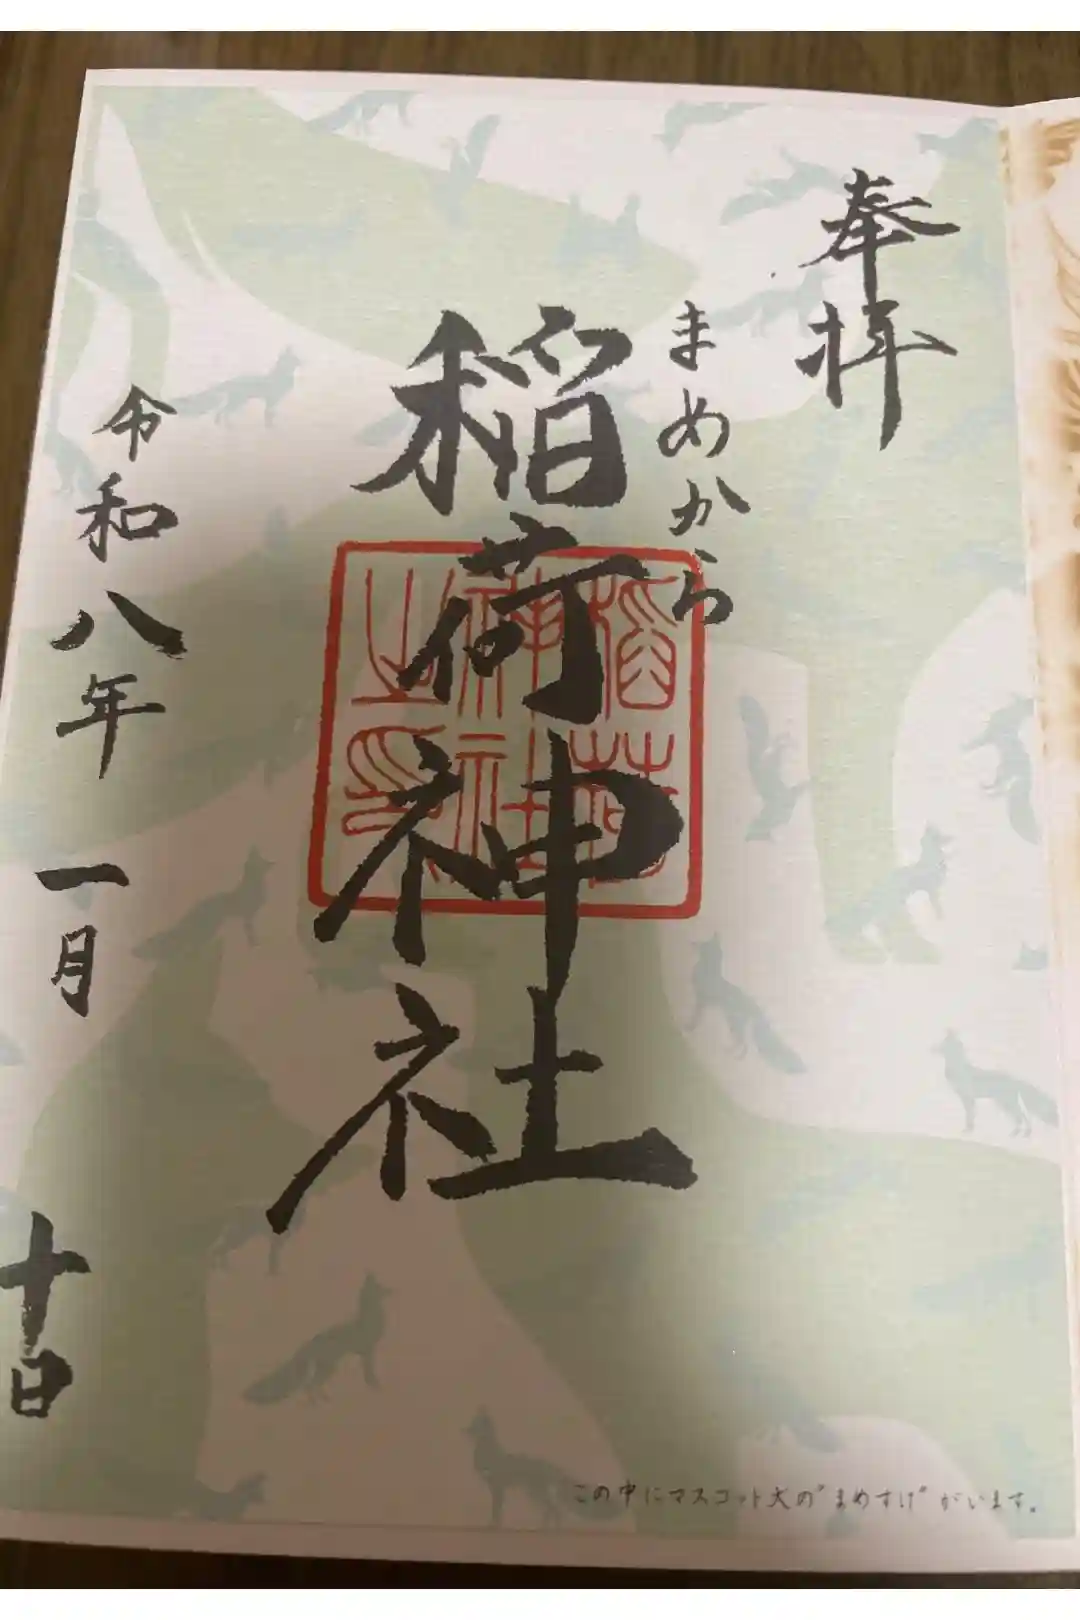 奉拝
まめから
稲荷神社
稲荷
神社
之印
令和八年 一月 十日
この中にマスコット犬の"まめすけ"がいます。